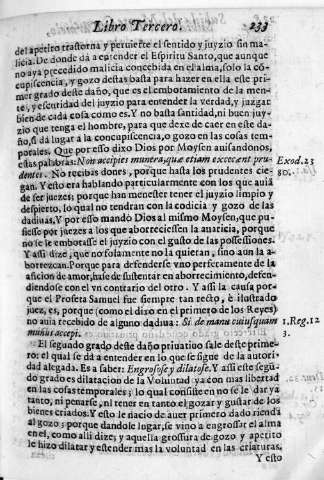 Libro Tercero. 233
del apetito trastorna y peruierte el sentido y juyzio sin ma-
licia. De donde dà a entender el Espiritu Santo, que aunque
no aya precedido malicia concebida en el alma, solo la cō-
cupiscencia, y gozo destas basta para hazer en ella este pri-
mer grado deste daño, que es el embotamiento de la men-
te, y escuridad del juyzio para entender la verdad, y juzgar
bien de cada cosa como es. Y no basta santidad, ni buen juy-
zio que tenga el hombre, para que dexe de caer en este da-
ño, si dà lugar a la concupiscencia, o gozo en las cosas tem-
porales. Que por esso dixo Dios por Moysen auisandonos,
estas palabras: Non accipies munera, quæ etiam excæcent pru- Exod. 23
dentes. No recibas dones, porque hasta los prudentes cie-
gan. Y esto era hablando particularmente con los que auiā
de ser juezes; porque han menester tener el juyzio limpio y
despierto, lo qual no tendran con la codicia y gozo de las
dadiuas. Y por esso mandò Dios al mismo Moysen, que pu-
siesse por juezes a los que aborreciessen la auaricia, porque
no se le embotasse el juyzio con el gusto de las possessiones.
Y assi dize, que no solamente no la quieran, sino aun la a-
borrezcan. Porque para defenderse vno perfectamente de la
aficion de amor, hase de sustentar en aborrecimiento, defen-
diendose con el vn contrario del otro. Y assi la causa por-
que el Profeta Samuel fue siempre tan recto, è ilustrado
juez, es, porque (como el dixo en el primero de los Reyes)
no auia recebido de alguno dadiua: Si de manu cuiusquam 1. Reg. 12
munus accepi. 3.
El segundo grado deste daño priuatiuo sale deste prime-
ro: el qual se dà a entender en lo que se sigue de la autori-
dad alegada. Es a saber: Engrosose y dilatose. Y assi este segū-
do grado es dilatacion de la Voluntad ya con mas libertad
en las cosas temporales; lo qual consiste en no se le dar ya
tanto, ni penarse, ni tener en tanto el gozar y gustar de los
bienes criados. Y esto le nacio de auer primero dado rienda
al gozo; porque dandole lugar, se vino a engrossar el alma
en el, como alli dize; y aquella grossura de gozo y apetito
le hizo dilatar y estender mas la voluntad en las criaturas.
Y esto